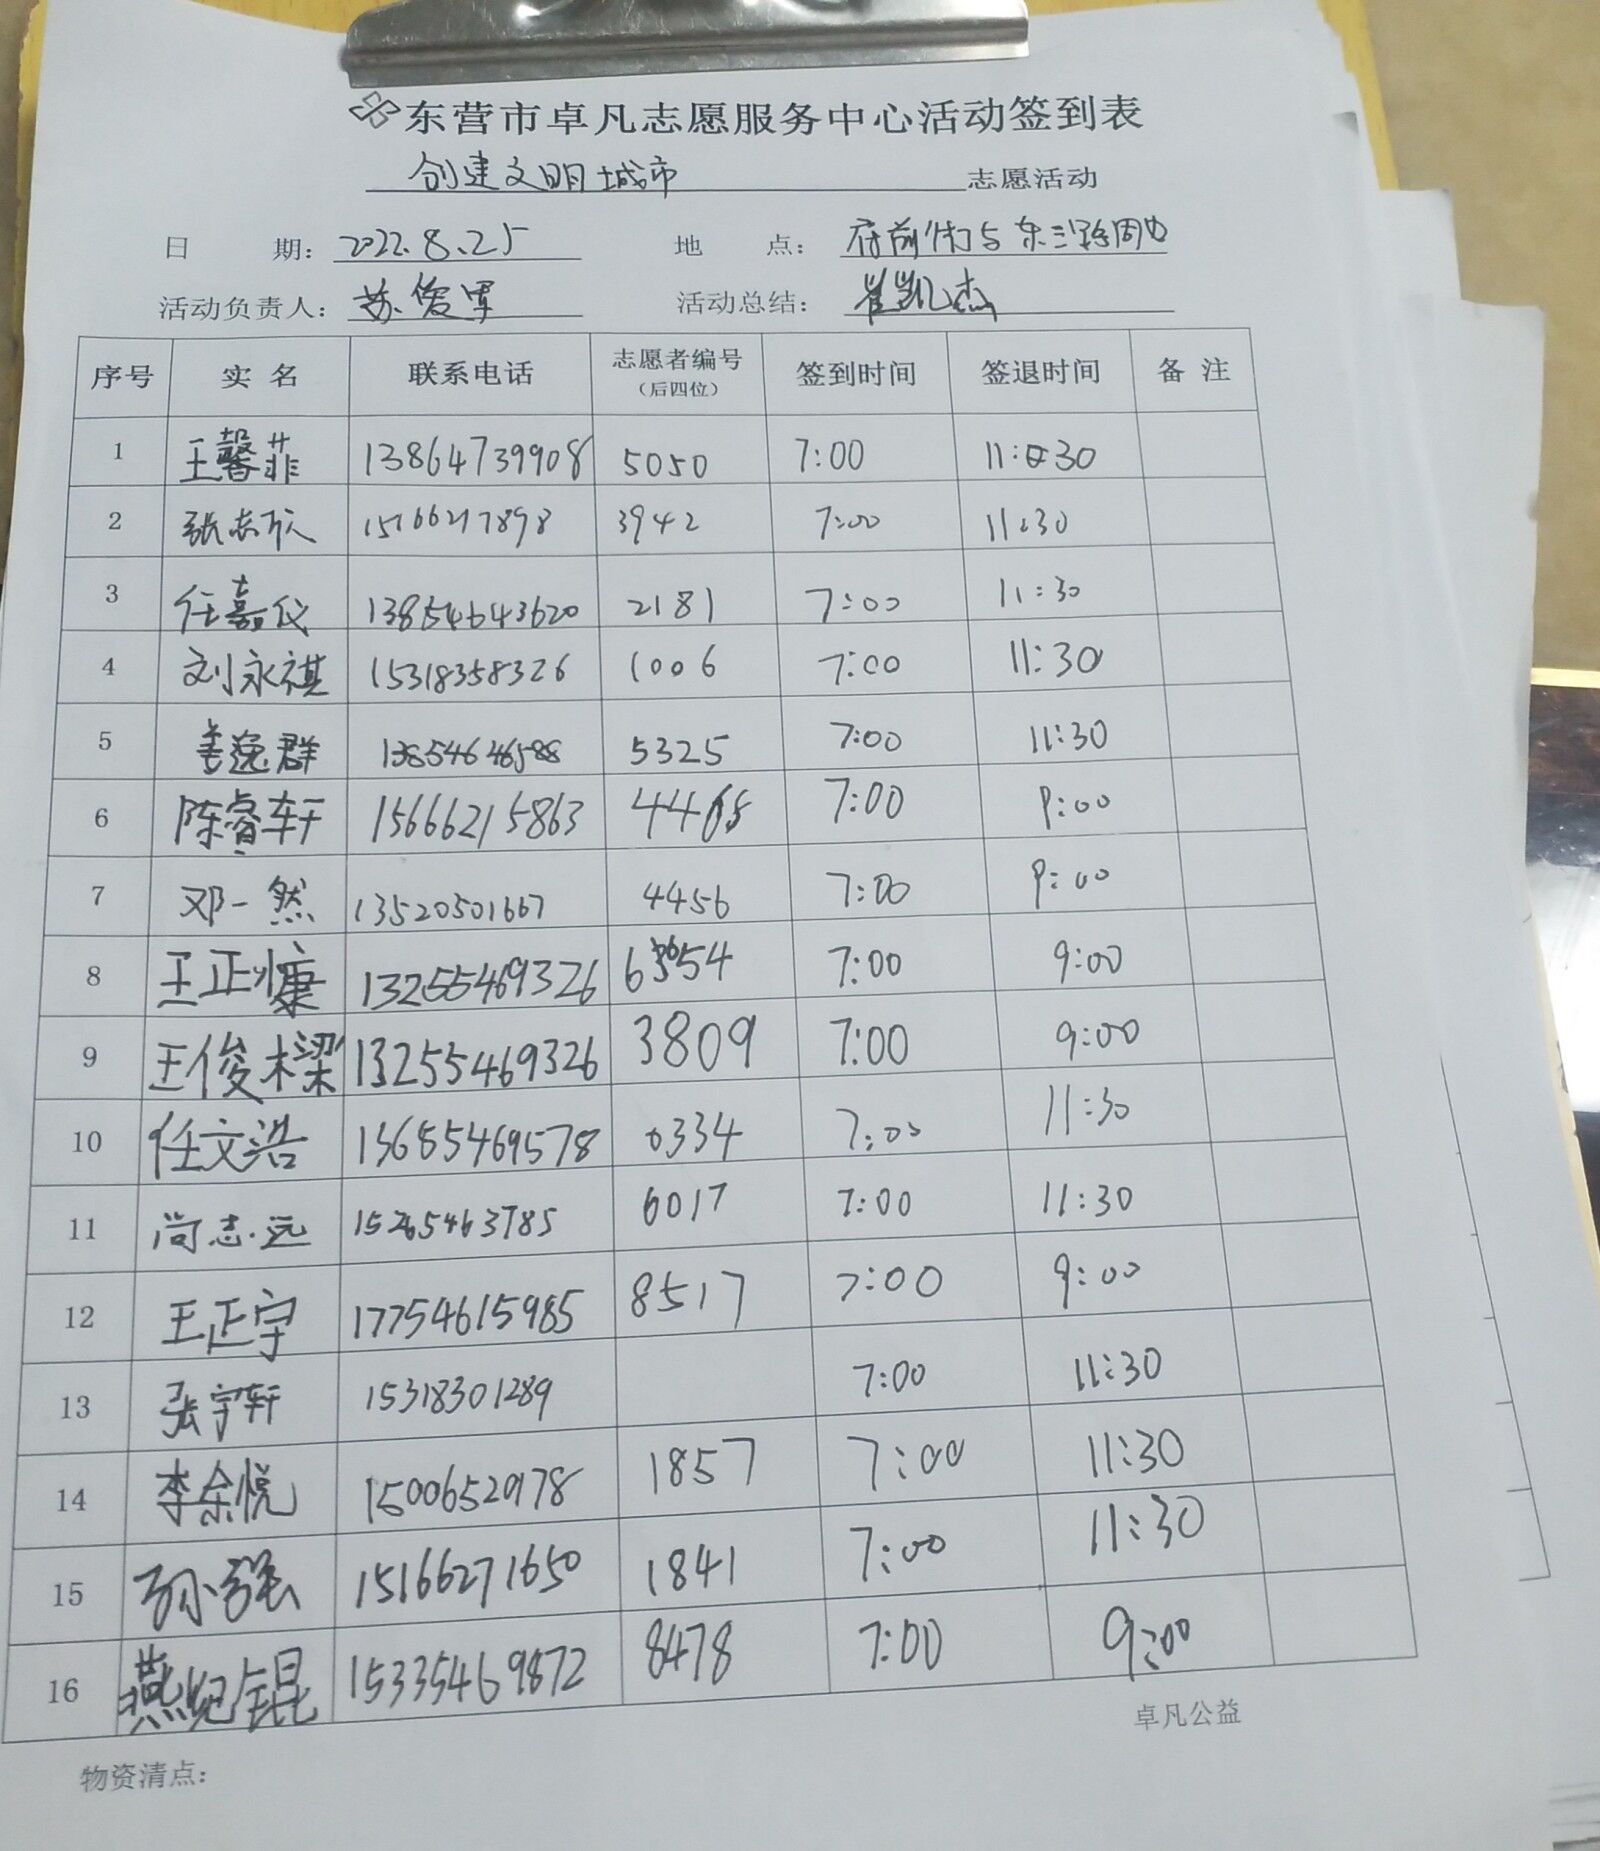 东营市卓凡志愿服务中心活动签到表
创建文明城市 志愿活动
日 期: 2022.8.25 地 点: 府前街与东三路周边
活动负责人: 苏俊军 活动总结: 崔凯杰
序号 实名 联系电话 志愿者编号(后四位) 签到时间 签退时间 备注
1 王馨菲 13864739908 5050 7:00 11:30
2 张志 3942 7:00 11:30
3 任嘉仪 13854643620 2181 7:00 11:30
4 刘永祺 15318358326 1006 7:00 11:30
5 姜逸群 13854646588 5325 7:00 11:30
6 陈睿轩 15666215863 7:00 9:00
7 邓一然 13520501667 4456 7:00 9:00
8 王正慷 13255469326 7:00 9:00
9 王俊樑 13255469326 3809 7:00 9:00
10 任文浩 13655469578 0334 7:00 11:30
11 尚志远 15265463785 6017 7:00 11:30
12 王正宇 17754615985 8517 7:00 9:00
13 张宇轩 15318301289 7:00 11:30
14 李余悦 15006520178 1857 7:00 11:30
15 孙强 15166271650 1841 7:00 11:30
16 燕纪锟 15335469872 8478 7:00 9:00
卓凡公益
物资清点: